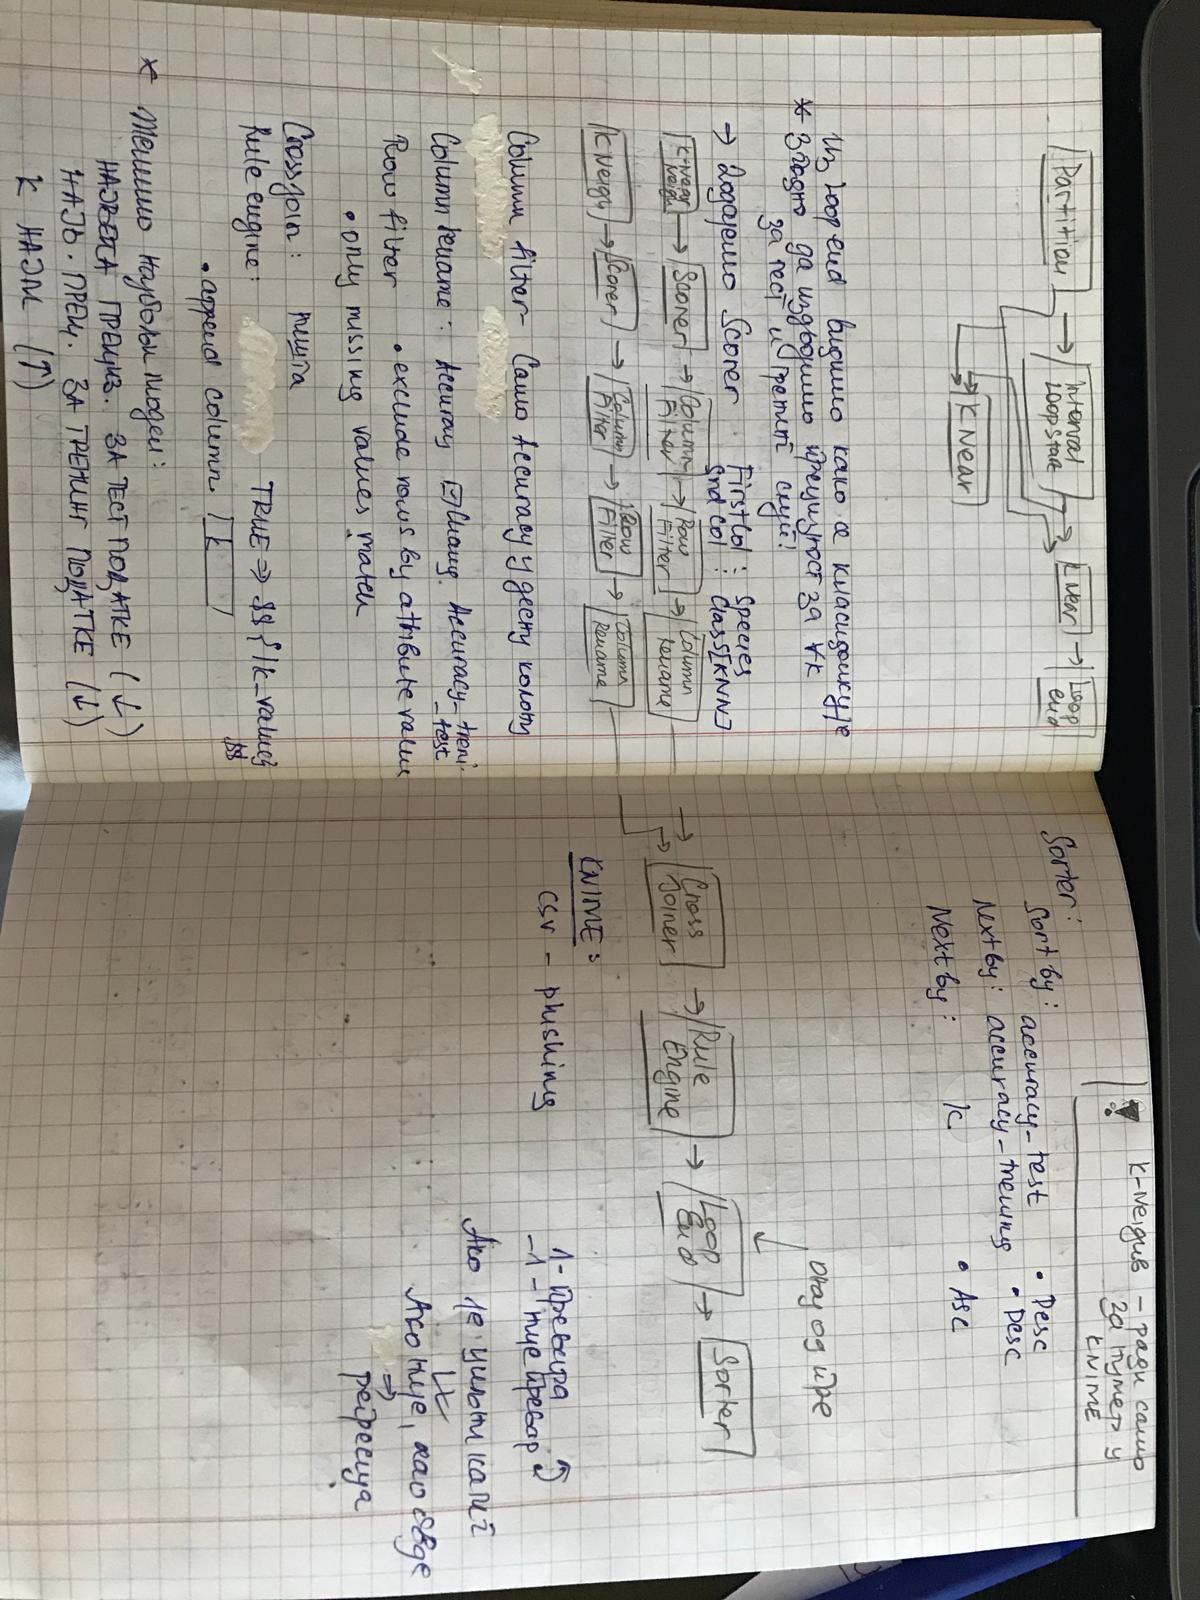 Partition → Interval Loop Start → K Near → Loop end
K Near
Из loop end видимо како се класификује
* Згодно да издвојимо прецизност за ∀k
за тест и тренинг скуп!
→ Додајемо Scorer First col : species
2nd col : class [kNN]
→ Scorer → Column Filter → Row Filter → Column rename
K Neigh → Scorer → Column Filter → Row Filter → Column rename
Column filter - само Accuracy у десну колону
Column rename : Accuracy ☑ Chang. Accuracy_treni.
_test
Row filter • exclude rows by attribute value
• only missing values match
Cross join : ништа
Rule engine : TRUE ⇒ $${I k_value}$$
• append column k
* Желимо најбољи модел :
НАЈВЕЋА ПРЕЦИЗ. ЗА ТЕСТ ПОДАТКЕ (↓)
НАЈВ. ПРЕЦ. ЗА ТРЕНИНГ ПОДАТКЕ (↓)
k НАЈМ (↑)
! K-Neighb - ради само
за нумер у
KNIME
Sorter : Sort by : accuracy-test • Desc
Next by : accuracy-trening • Desc
Next by : k • Asc
онај од пре
→ Cross Joiner → Rule Engine → Loop End → Sorter
KNIME :
csv - phishing
1 - превара
-1 - није превар
Ако је циљни кат
Ако није, као овде
⇒ регресија